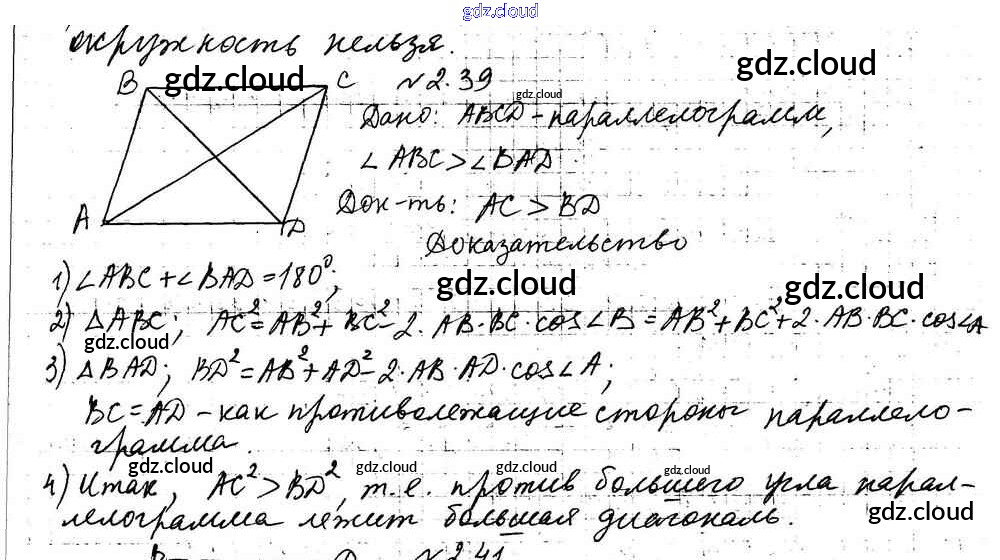 gdz.cloud
окружность нельзя.
B gdz.cloud C №2.39 gdz.cloud
gdz.cloud
Дано: ABCD - параллелограмм,
∠ABC > ∠BAD
A D Док-ть: AC > BD
Доказательство
1) ∠ABC + ∠BAD = 180°;
gdz.cloud gdz.cloud
2) △ABC; AC² = AB² + BC² - 2·AB·BC·cos∠B = AB² + BC² + 2·AB·BC·cos∠A
gdz.cloud
3) △BAD; BD² = AB² + AD² - 2·AB·AD·cos∠A;
BC = AD - как противолежащие стороны параллело-
грамма.
gdz.cloud gdz.cloud gdz.cloud gdz.cloud
4) Итак, AC² > BD², т.е. против большего угла парал-
лелограмма лежит большая диагональ.
gdz.cloud
№2.41